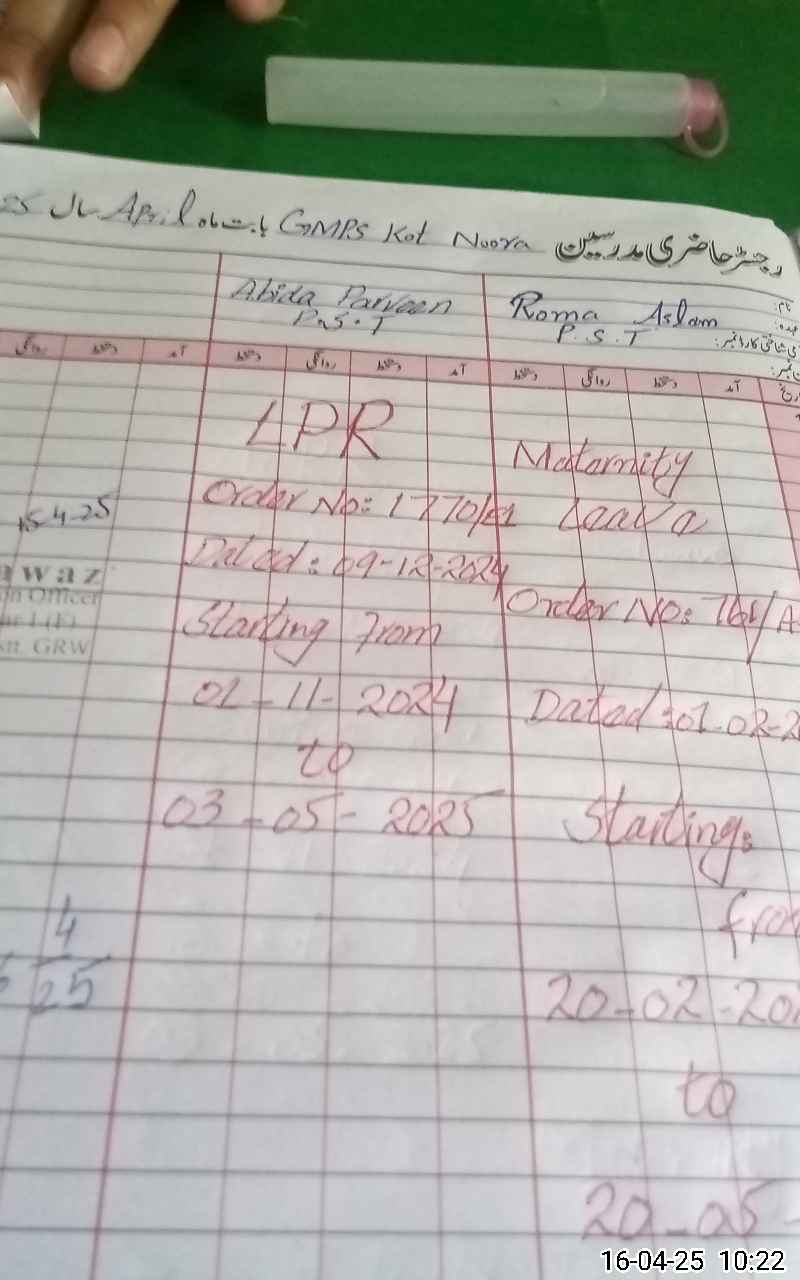 رجسٹر حاضری مدرسین GMPS Kot Noora بابت ماہ April سال 25
نام:
عہدہ:
Roma Aslam
P.S.T
Abida Parveen
P.S.T
آمد دستخط روانگی دستخط آمد دستخط روانگی دستخط آمد دستخط روانگی
Maternity
Leave
Order No:
Dated: 01-02-2
Starting:
from
20-02-20
to
20-05-
LPR
Order No: 1770/
Dated: 09-12-2024
Starting From
01-11-2024
to
03-05-2025
15-4-25
awaz
n Officer
GRW
4
25
16-04-25 10:22